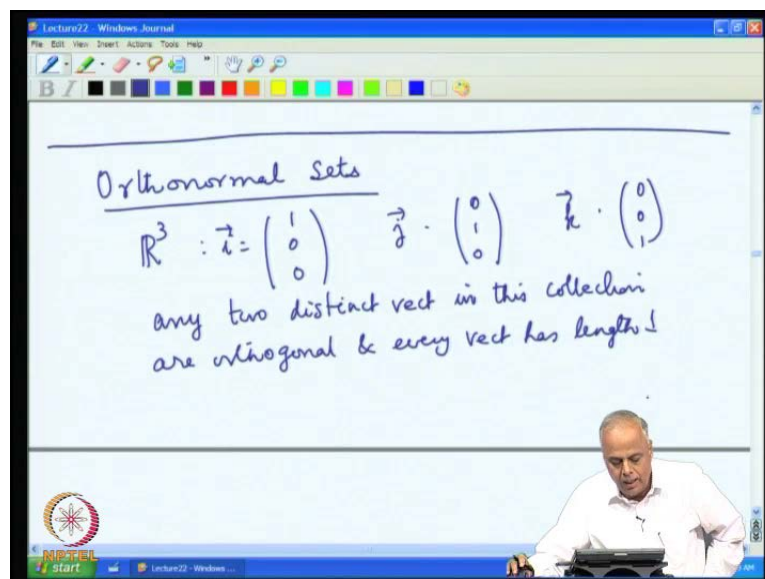 Lecture22 - Windows Journal
File Edit View Insert Actions Tools Help
B I
Orthonormal Sets
ℝ³ : i⃗ = (1 0 0) j⃗ · (0 1 0) k⃗ · (0 0 1)
any two distinct vect in this collection
are orthogonal & every vect has length 1
NPTEL
start Lecture22 - Windows ...